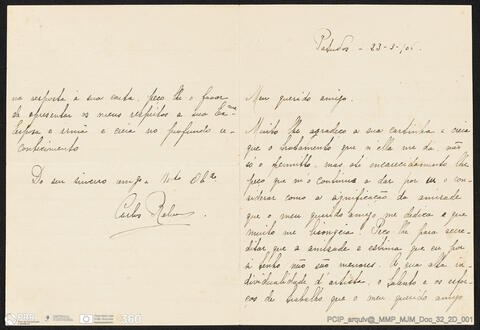 Patudos - 23-3-901
Meu querido amigo.
Muito lhe agradeço a sua cartinha e creia
que o tratamento que n'ella me dá, não
só o permitto, mas até encarecidamente lhe
peço que m'o continue a dar por eu o con-
siderar como a significação da amisade
que o meu querido amigo me dedica e que
muito me lisongeia. Peço-lhe para acre-
ditar que a amisade e estima que eu por
si tenho não são menores. A sua alta in-
dividualidade d'artista, o talento e os esfor-
ços de trabalho que o meu querido amigo
na resposta à sua carta, peço-lhe o favor
de apresentar os meus respeitos a sua Ex.ma
Esposa e irmã e creia no profundo re-
conhecimento
Do seu sincero amigo e M.to Ob.do
Carlos Relvas
PCIP_arquiv@_MMP_MJM_Doc_32_2D_001